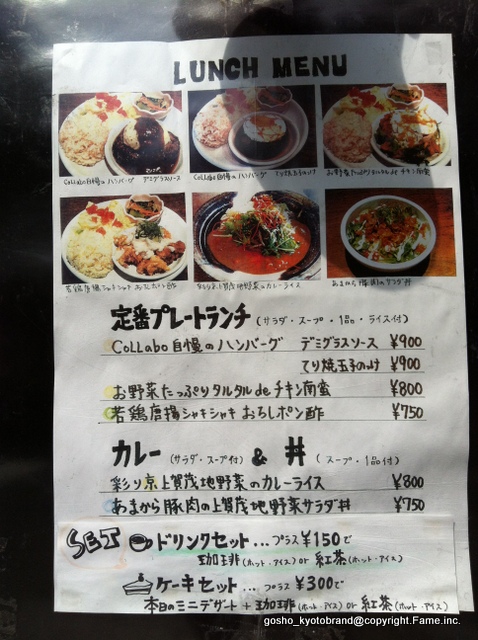 LUNCH MENU
Collabo自慢のハンバーグ デミグラスソース
Collabo自慢のハンバーグ てり焼玉子のっけ
お野菜たっぷりタルタルdeチキン南蛮
若鶏唐揚シャキシャキおろしポン酢
彩り京上賀茂地野菜のカレーライス
あまから豚肉のサラダ丼
定番プレートランチ (サラダ・スープ・1品・ライス付)
Collabo自慢のハンバーグ デミグラスソース ¥900
てり焼玉子のっけ ¥900
お野菜たっぷりタルタルdeチキン南蛮 ¥800
若鶏唐揚シャキシャキおろしポン酢 ¥750
カレー (サラダ・スープ付) & 丼 (スープ・1品付)
彩り京上賀茂地野菜のカレーライス ¥800
あまから豚肉の上賀茂地野菜サラダ丼 ¥750
SET ドリンクセット... プラス¥150で
珈琲(ホット・アイス) or 紅茶(ホット・アイス)
ケーキセット... プラス¥300で
本日のミニデザート + 珈琲(ホット・アイス) or 紅茶(ホット・アイス)
gosho_kyotobrand@copyright.Fame.inc.